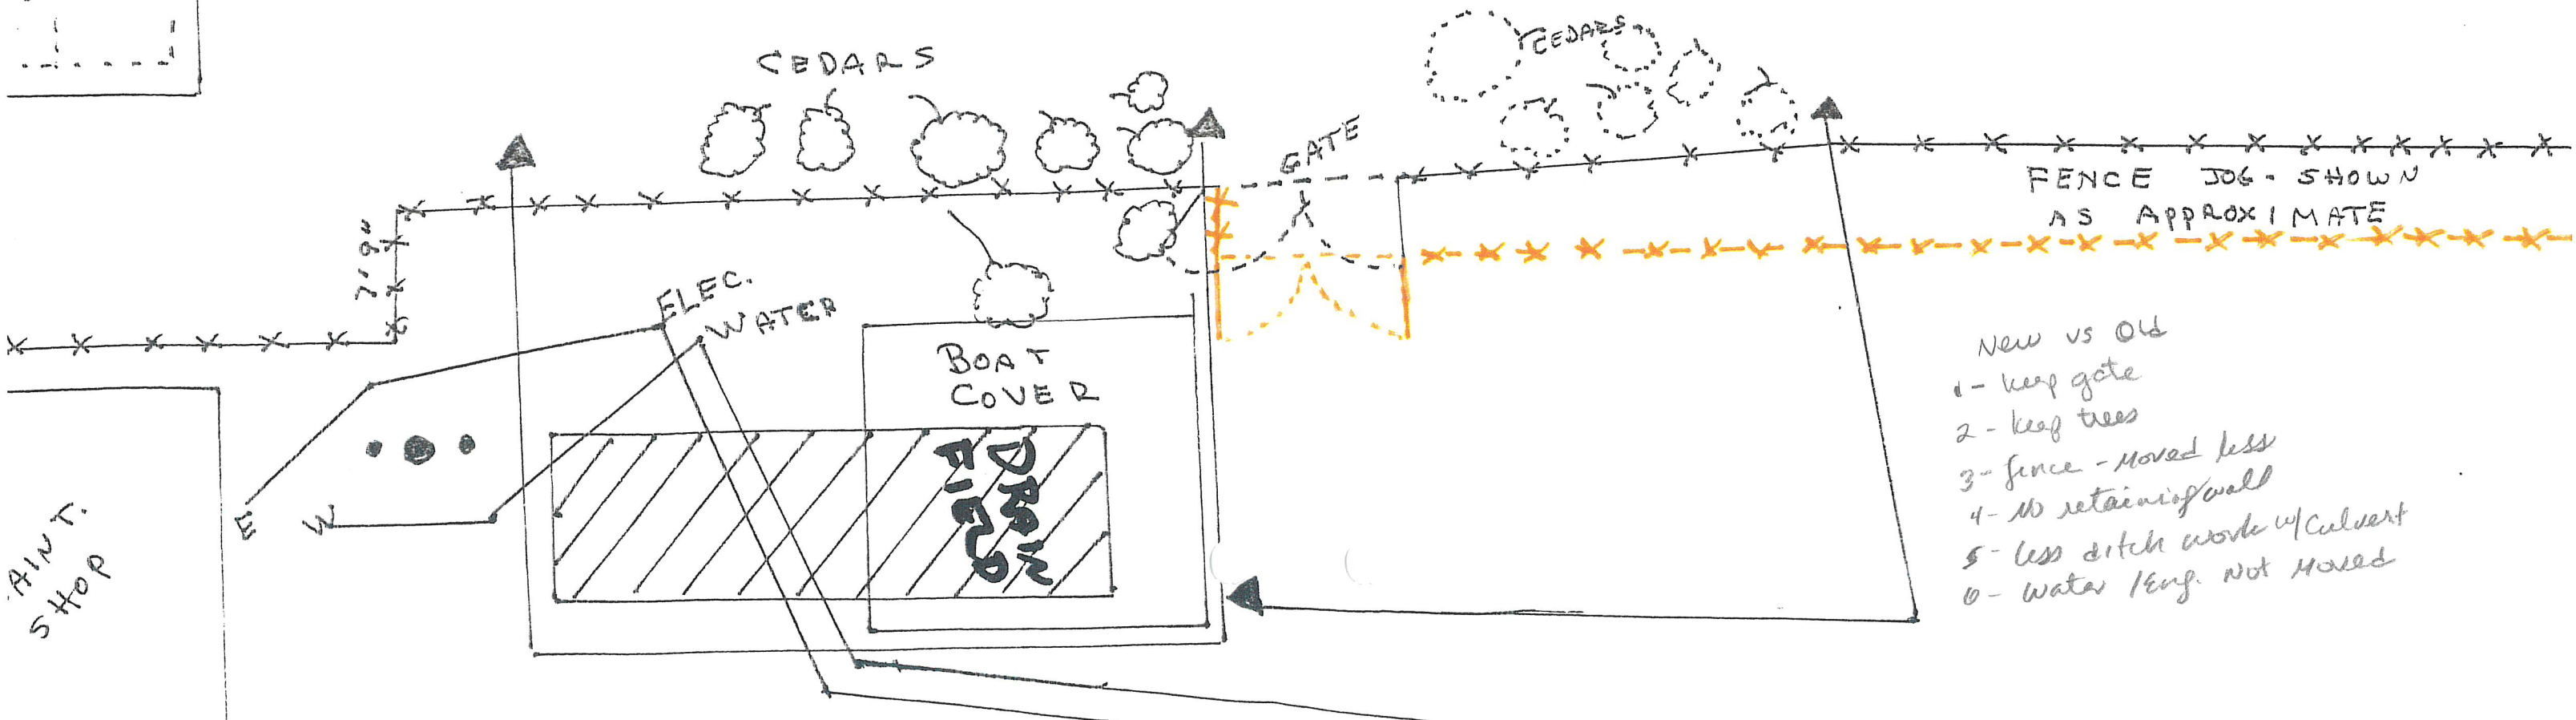 CEDARS
CEDARS
GATE
FENCE JOG - SHOWN
AS APPROXIMATE
7'9"
ELEC.
WATER
BOAT
COVER
DRAIN
FIELD
E
W
AINT.
SHOP
New vs Old
1 - keep gate
2 - keep trees
3 - fence - moved less
4 - No retaining wall
5 - less ditch work w/ Culvert
6 - water / Eng. Not Moved